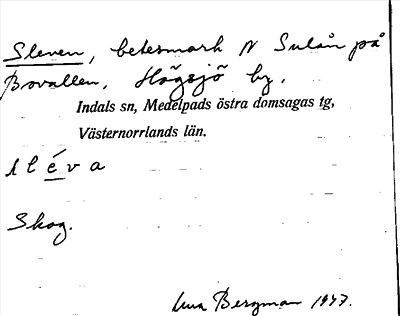 Sleven, betesmark N Sulån på
Bovallen, Högsjö by.
Indals sn, Medelpads östra domsagas tg,
Västernorrlands län.
sléva
Skog.
Bergman 1947.